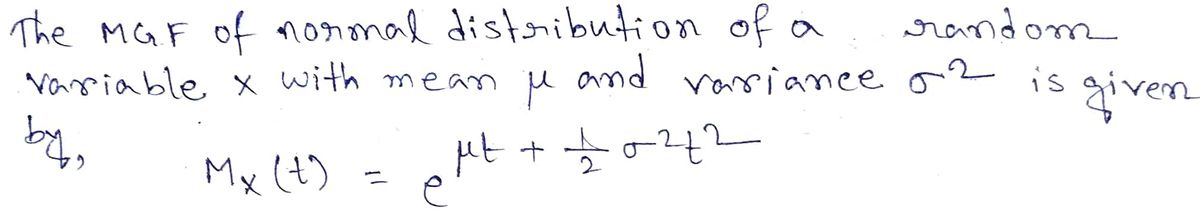 The MGF of normal distribution of a random
variable x with mean μ and variance σ² is given
by,
Mx(t) = e^{μt + 1/2 σ²t²}